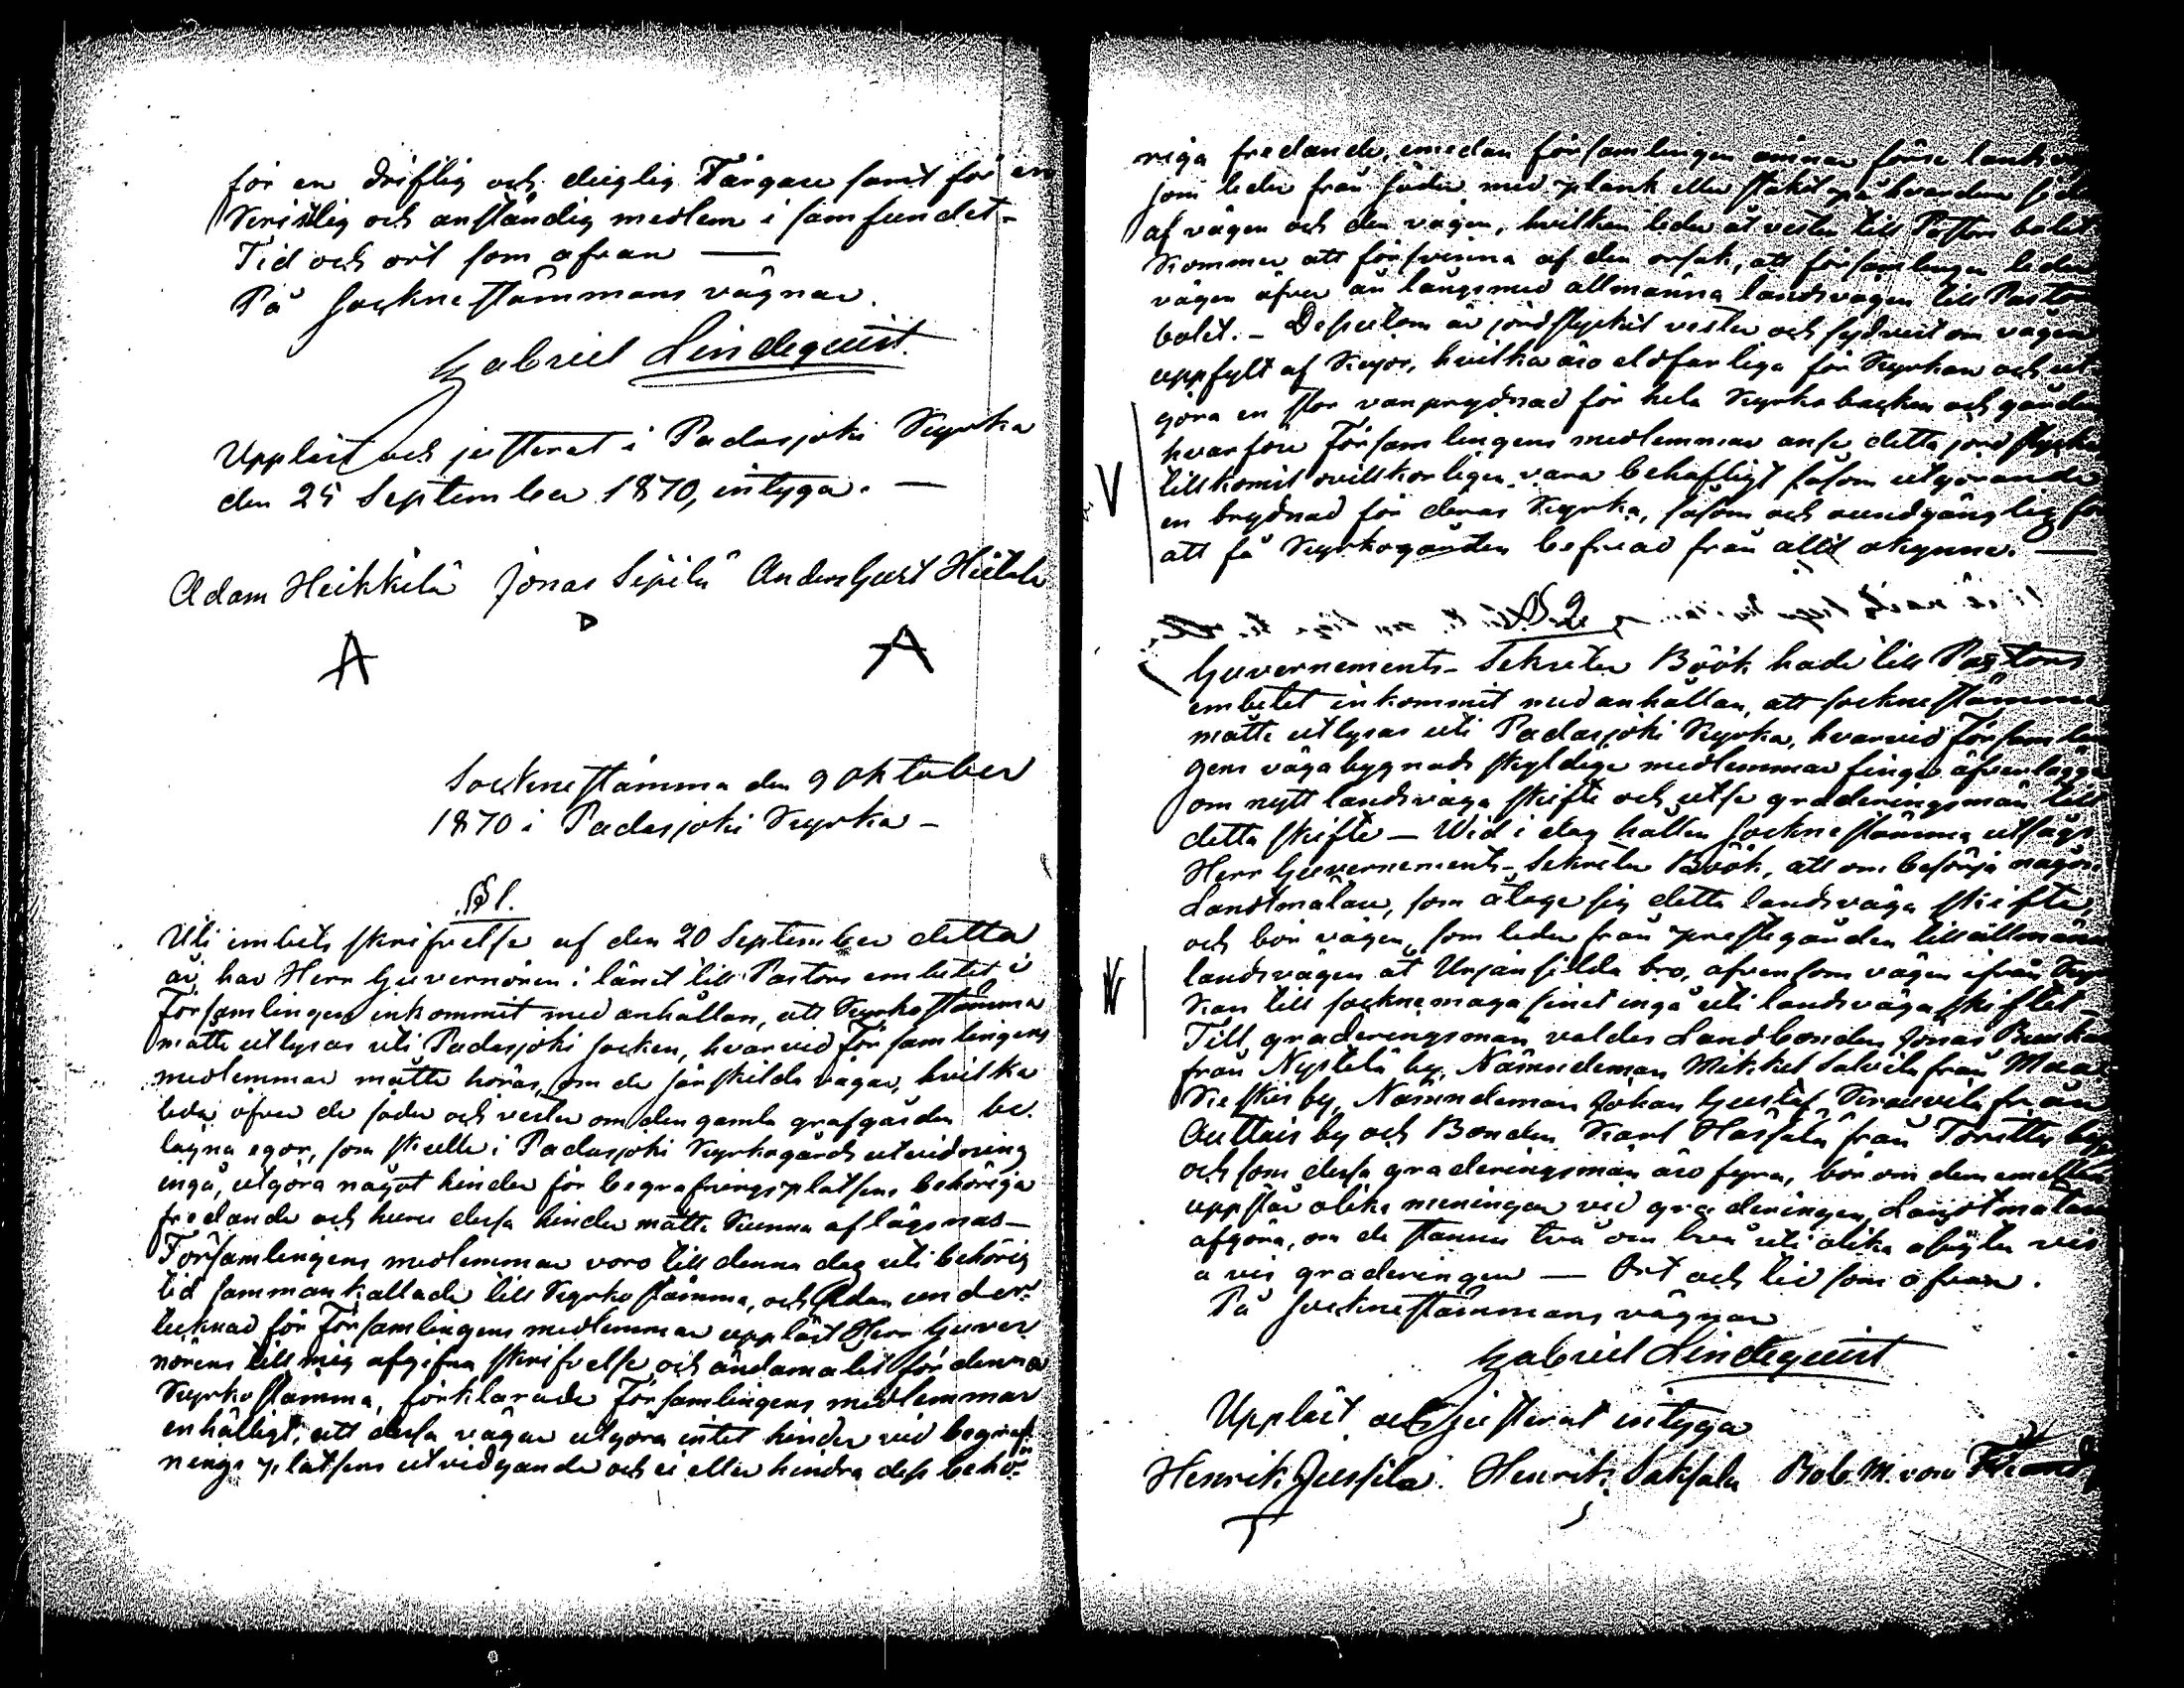 för en driftig och duglig Färgare samt för en
Kristlig och anständig medlem i samfundet -
Tid och ort som ofvan —
På Sockne stämmans vägnar.
Gabriel Lindequist.
Uppläst och justerat i Padasjoki Kyrka
den 25 September 1870, intyga. —
Adam Heikkilä Jonas Sipilä Anders Gust Hietala
Sockne stämma den 9 oktober
1870 i Padasjoki Kyrka -
§ 1.
Uti embets skrifvelse af den 20 September detta
år, har Herr Guvernören i länet till Pastors embetet i
Församlingen inkommit med anhållan, att Kyrkostämma
måtte utlysas uti Padasjoki socken, hvarvid församlingens
medlemmar måtte höras, om de särskilda vägar, hvilka
leda öfver de söder och vester om den gamla grafgården be-
lägna egor, som skulle i Padasjoki Kyrkogårds utvidgning
ingå, utgöra något hinder för begrafningsplatsens behöriga
fredande och huru dessa hinder måtte kunna aflägsnas -
Församlingens medlemmar voro till denna dag uti behörig
tid sammankallade till Kyrko stämma, och sedan under-
tecknad för Församlingens medlemmar uppläst Herr Guver
nörens till mig afgifna skrifvelse och ändamålet för denna
Kyrko stämma, förklarade Församlingens medlemmar
enhälligt, att dessa vägar utgöra intet hinder vid begraf-
nings platsens utvidgande och ei eller hindra dess behö-
riga fredande, emedan församlingen ämnar förse landsvägen
som leder från söder med plank eller staket på hvardera sidan
af vägen och den vägen, hvilken leder åt vester till Pastors bolet
kommer att försvinna af den orsak, att församlingen leder
vägen öfver ån längsmed allmänna landsvägen till Pastors
bolet. - Dessutom är jordstycket vester och sydvest om vägen
uppfylt af Kojor, hvilka äro eldfarliga för Kyrkan och ut-
göra en stor vanprydnad för hela Kyrkobacken och gården
hvarföre Församlingens medlemmar anse detta jord stycke
tillkomst ovillkorligen vara behöfligt såsom utgörande
en prydnad för deras Kyrka, såsom och oundgänglig för
att få Kyrkogården befriad från allt okynne. —
§ 2
Guvernements-Sekreter Böök hade till Pastors
embetet inkommit med anhållan, att sockne stämma
måtte utlysas uti Padasjoki Kyrka, hvarvid Församlin
gens vägabygnads skyldige medlemmar finge öfverlägga
om nytt landsväga skifte och utse graderingsmän till
detta skifte — Wid i dag hållen Sockne stämma utsågs
Herr Guvernements-Sekreter Böök, att om besörja någon
Landtmätare, som åtoge sig detta landsväga skifte,
och bör vägen, som leder från prestegården till allmänna
landsvägen åt bro, äfvensom vägen ifrån Kyr
kan till sockne magasinet ingå uti landsväga skiftet -
Till graderingsmän valdes Landbonden Jonas
från Nystölä by, Nämndeman Mikkel från Maa
Kieskis by, Nämndeman Johan Gustaf från
Auttois by och Bonden Karl Hassala från Torittu by
och som dessa graderingsmän äro fyra, bör om dem emellan
uppstår olika meningar vid graderingen, Landtmätaren
afgöra, om de stanna två om två uti olika åsigter vis
a vis graderingen — Ort och tid som ofvan.
På Socknestämmans vägnar
Gabriel Lindequist
Uppläst och justerat intyga
Henrik Jussila. Henrik Saksala Rob. M. von